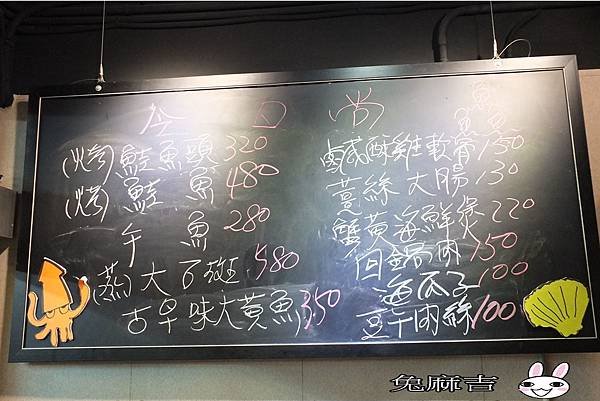 全日尚鱻
(烤)鮭魚頭320
(烤)鮭魚480
午魚280
(蒸)大石斑580
古早味大黃魚350
鹹酥雞軟骨150
薑絲大腸130
蟹黃海鮮煲220
回鍋肉150
海瓜子100
豆干肉絲100
兔麻吉